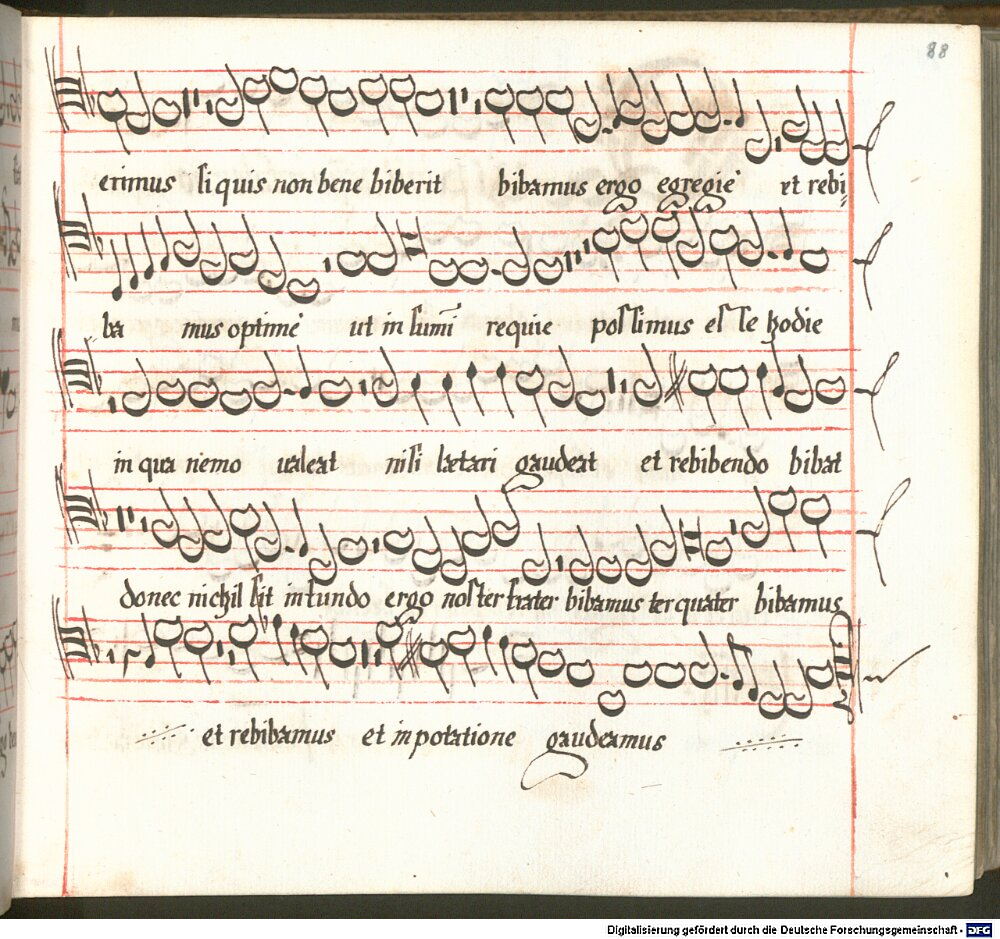 88
erimus si quis non bene biberit bibamus ergo egregie et rebi=
ba mus optime ut in sum̄i requie possimus esse hodie
in qua nemo valeat nisi lætari gaudeat et rebibendo bibat
donec nichil sit in fundo ergo noster frater bibamus ter quater bibamus
et rebibamus et in potatione gaudeamus
Digitalisierung gefördert durch die Deutsche Forschungsgemeinschaft - DFG